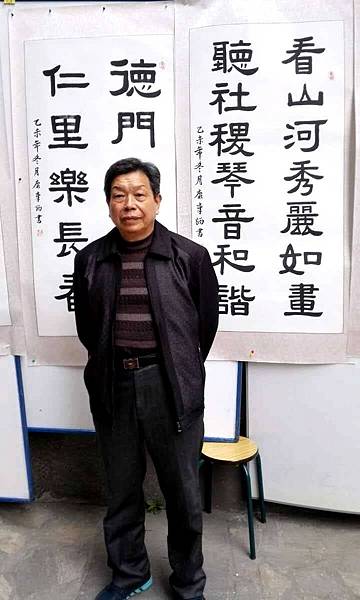 看山河秀麗如畫
聽社稷琴音和諧
乙未年冬月 書
德門
仁里樂長春
乙未年冬月 書